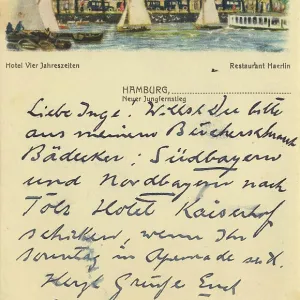 Hotel Vier Jahreszeiten Restaurant Haerlin
HAMBURG,
Neuer Jungfernstieg
Liebe Inge! Willst Du bitte
aus meinem Bücherschrank
Bädecker: Südbayern
und Nordbayern nach
Tölz Hotel Kaiserhof
schicken, wenn Ihr
Sonntag in seid.
Herzl Grüße Euch